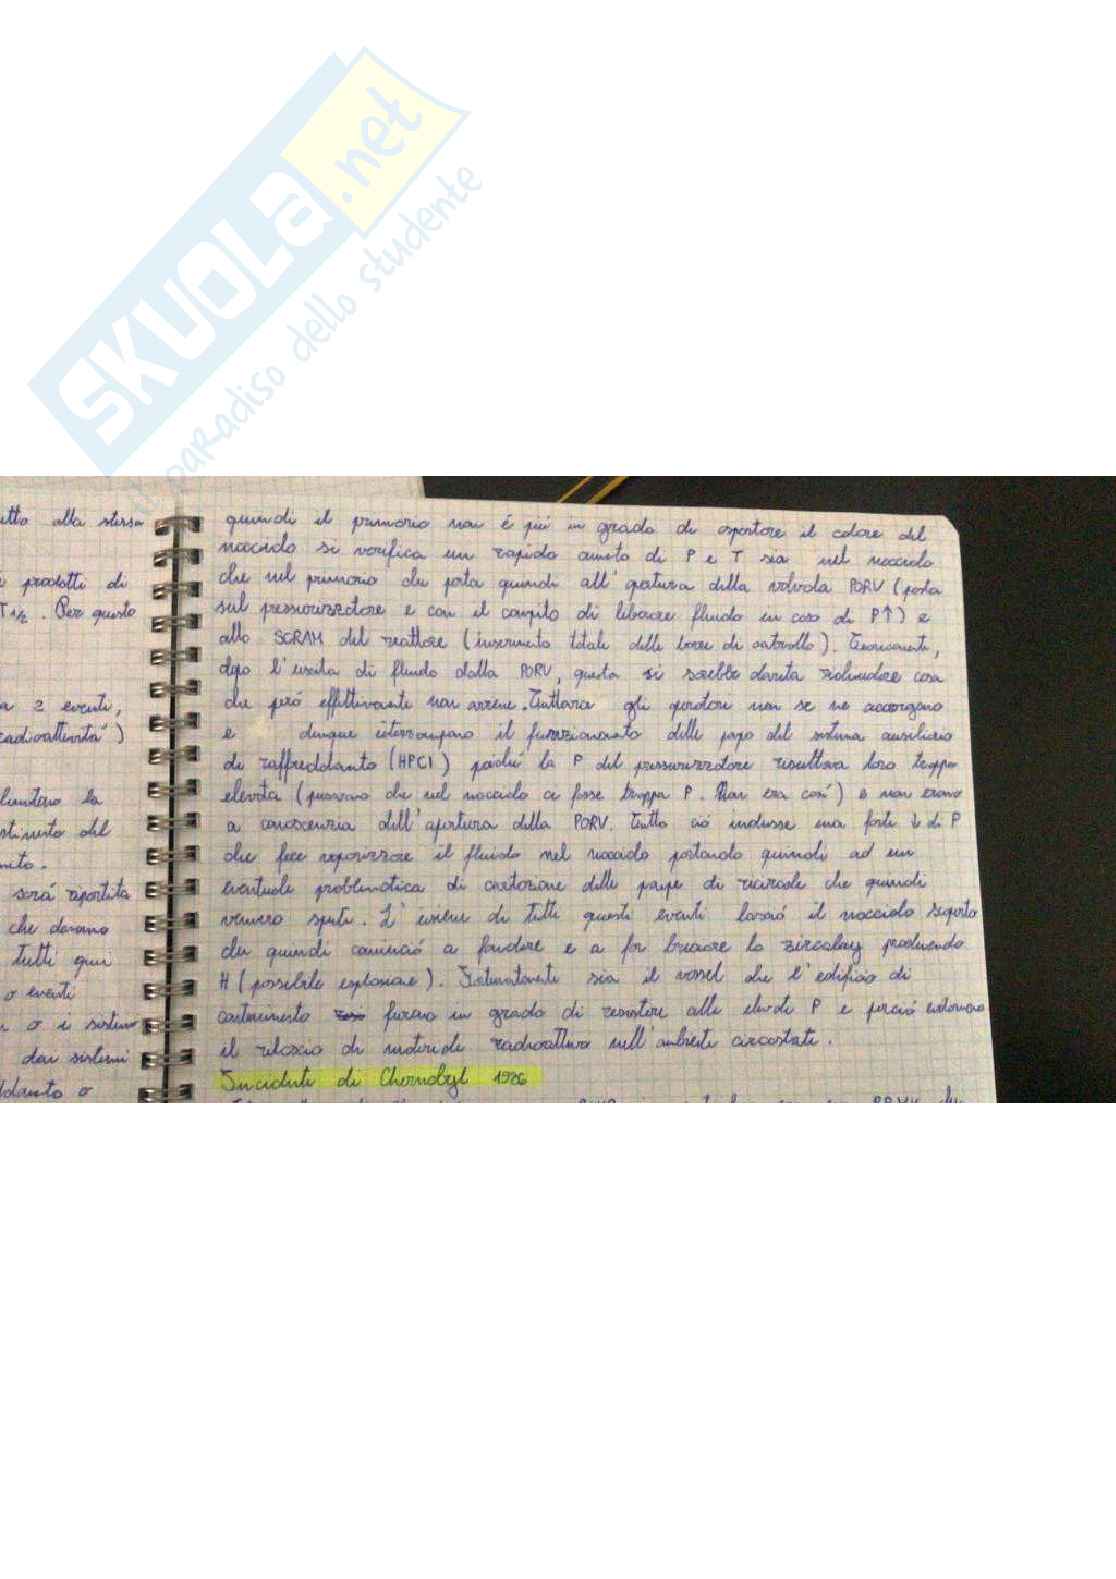 SKUOLA.net
il paradiso dello studente
utto alla stessa
i prodotti di
T 1/2 . Per questo
a 2 eventi,
radioattività")
la
del
sarà riportata
che devono
tutti quei
o eventi
o i sistemi
dai sistemi
o
quindi il primario non é piú in grado di asportare il calore del
nocciolo si verifica un rapido aumento di P e T sia nel nocciolo
che nel primario che porta quindi all'apertura della valvola PORV (posta
sul pressurizzatore e con il compito di liberare fluido in caso di P↑) e
allo SCRAM del reattore (inserimento totale delle barre di controllo). Teoricamente,
dopo l'uscita di fluido dalla PORV, questa si sarebbe dovuta richiudere cosa
che peró effettivamente non avviene. Tuttavia gli operatori non se ne accorgono
e dunque interrompono il funzionamento delle pompe del sistema ausiliario
di raffreddamento (HPCI) poiché la P del pressurizzatore risultava loro troppo
elevata (pensavano che nel nocciolo ce fosse troppa P. Non era cosí) e non erano
a conoscenza dell'apertura della PORV. Tutto ció indusse una forte ↓ di P
che fece vaporizzare il fluido nel nocciolo portando quindi ad un
eventuale problematica di cavitazione delle pompe di ricircolo che quindi
vennero spente. L'insieme di tutti questi eventi lasció il nocciolo scoperto
che quindi cominció a fondere e a far bruciare lo zircaloy producendo
H (possibile esplosione). Fortunatamente sia il vessel che l'edificio di
contenimento furono in grado di resistere alle elevate P e perció evitarono
il rilascio di materiale radioattivo nell'ambiente circostante.
Incidente di Chernobyl 1986